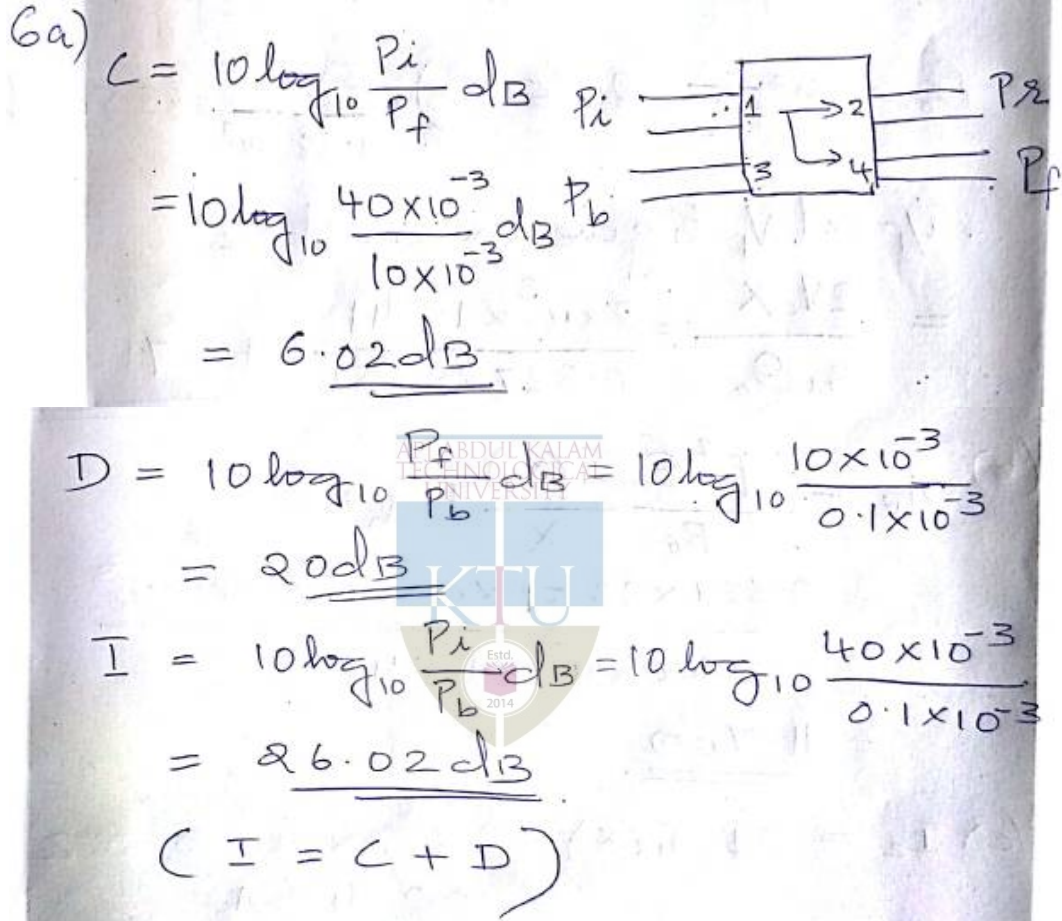 6a)
C = 10 log₁₀ Pi/Pf dB
= 10 log₁₀ 40×10⁻³/10×10⁻³ dB
= 6.02dB
Pi 1 2 Pr
Pb 3 4 Pf
D = 10 log₁₀ Pf/Pb dB = 10 log₁₀ 10×10⁻³/0.1×10⁻³
= 20dB
I = 10 log₁₀ Pi/Pb dB = 10 log₁₀ 40×10⁻³/0.1×10⁻³
= 26.02dB
(I = C + D)
APJ ABDUL KALAM
TECHNOLOGICAL
UNIVERSITY
KTU
Estd.
2014